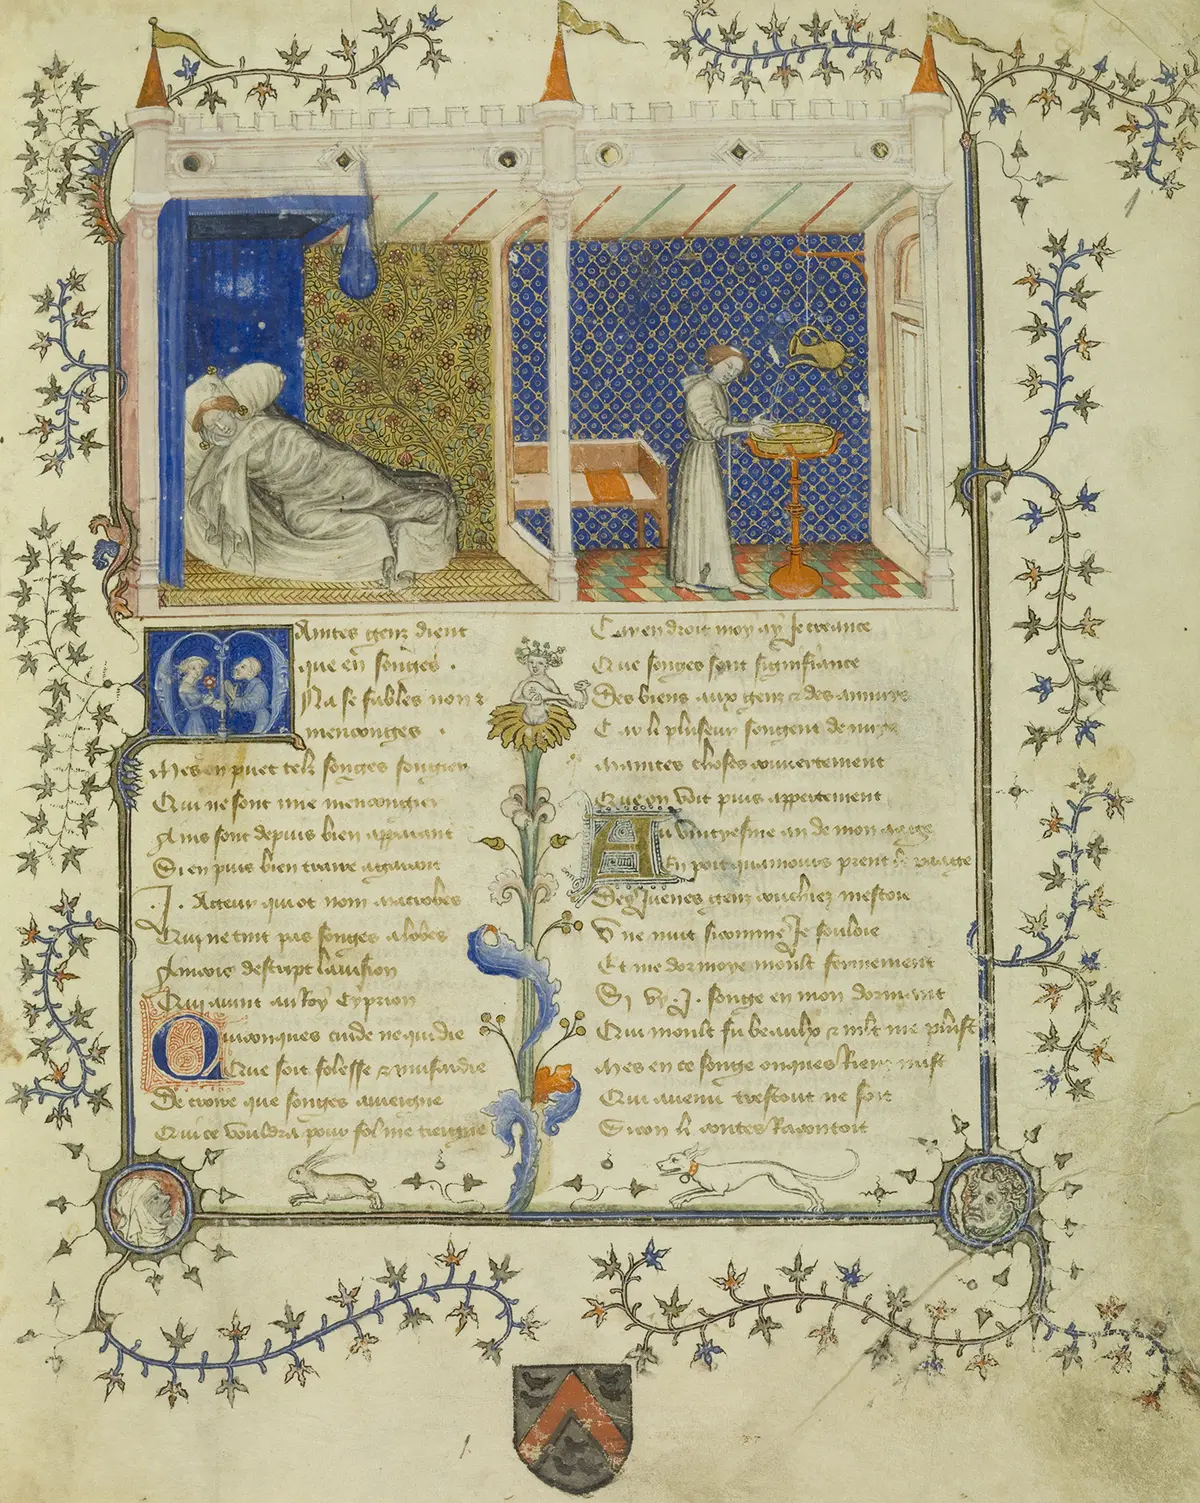 Maintes genz dient
que en songes
Na se fables non &
menconges
Mes en puet telz songes songier
Qui ne sont mie mencongier
Ains sont depuis bien apparant
Si en puis bien traire a garant
.J. Acteur qui ot nom macrobes
Qui ne tint pas songes a lobes
Aincois descript lavision
Qui avint au Roy Cyprion
Quiconques cuide ne qui die
Que soit folesse & musardie
De croire que songes aviengne
Qui ce vouldra pour fol me tiengne
Car en droit moy ay Je creance
Que songes sont signifiance
Des biens aux genz & des annuis
Car li pluseur songent de nuis
Maintes choses couvertement
Que on voit puis appertement
Au vintiesme an de mon aage
En point quamours prent le paage
Des Juenes genz couchiez mestoie
Une nuit si comme Je souloie
Et me dormoye moult forment
Si vy .J. songe en mon dormant
Qui moult fu beaulx & mlt me plust
Mes en ce songe onques Riens nust
Qui avenu trestout ne soit
Si con li contes Racontoit